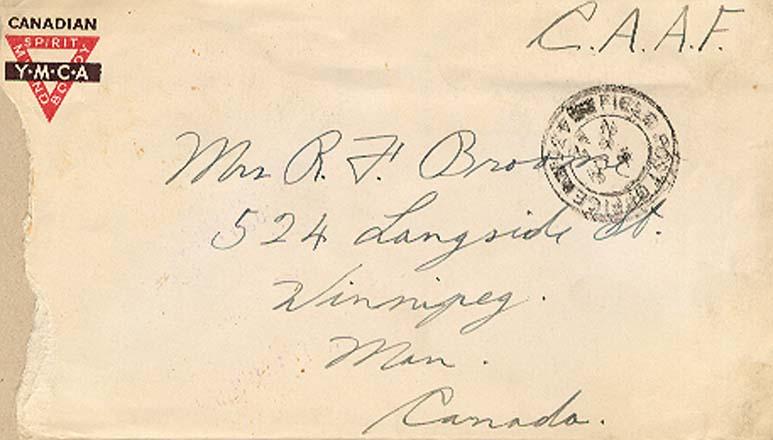 CANADIAN
SPIRIT
MIND
BODY
Y·M·C·A
C.A.A.F.
FIELD POST OFFICE
Mrs R. F. Broome
524 Langside St.
Winnipeg.
Man.
Canada.